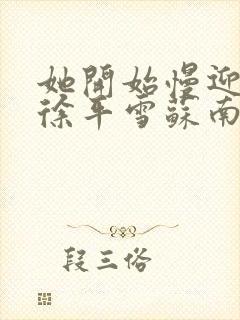 她開始慢迎
徐平雪蘇南
段三俗